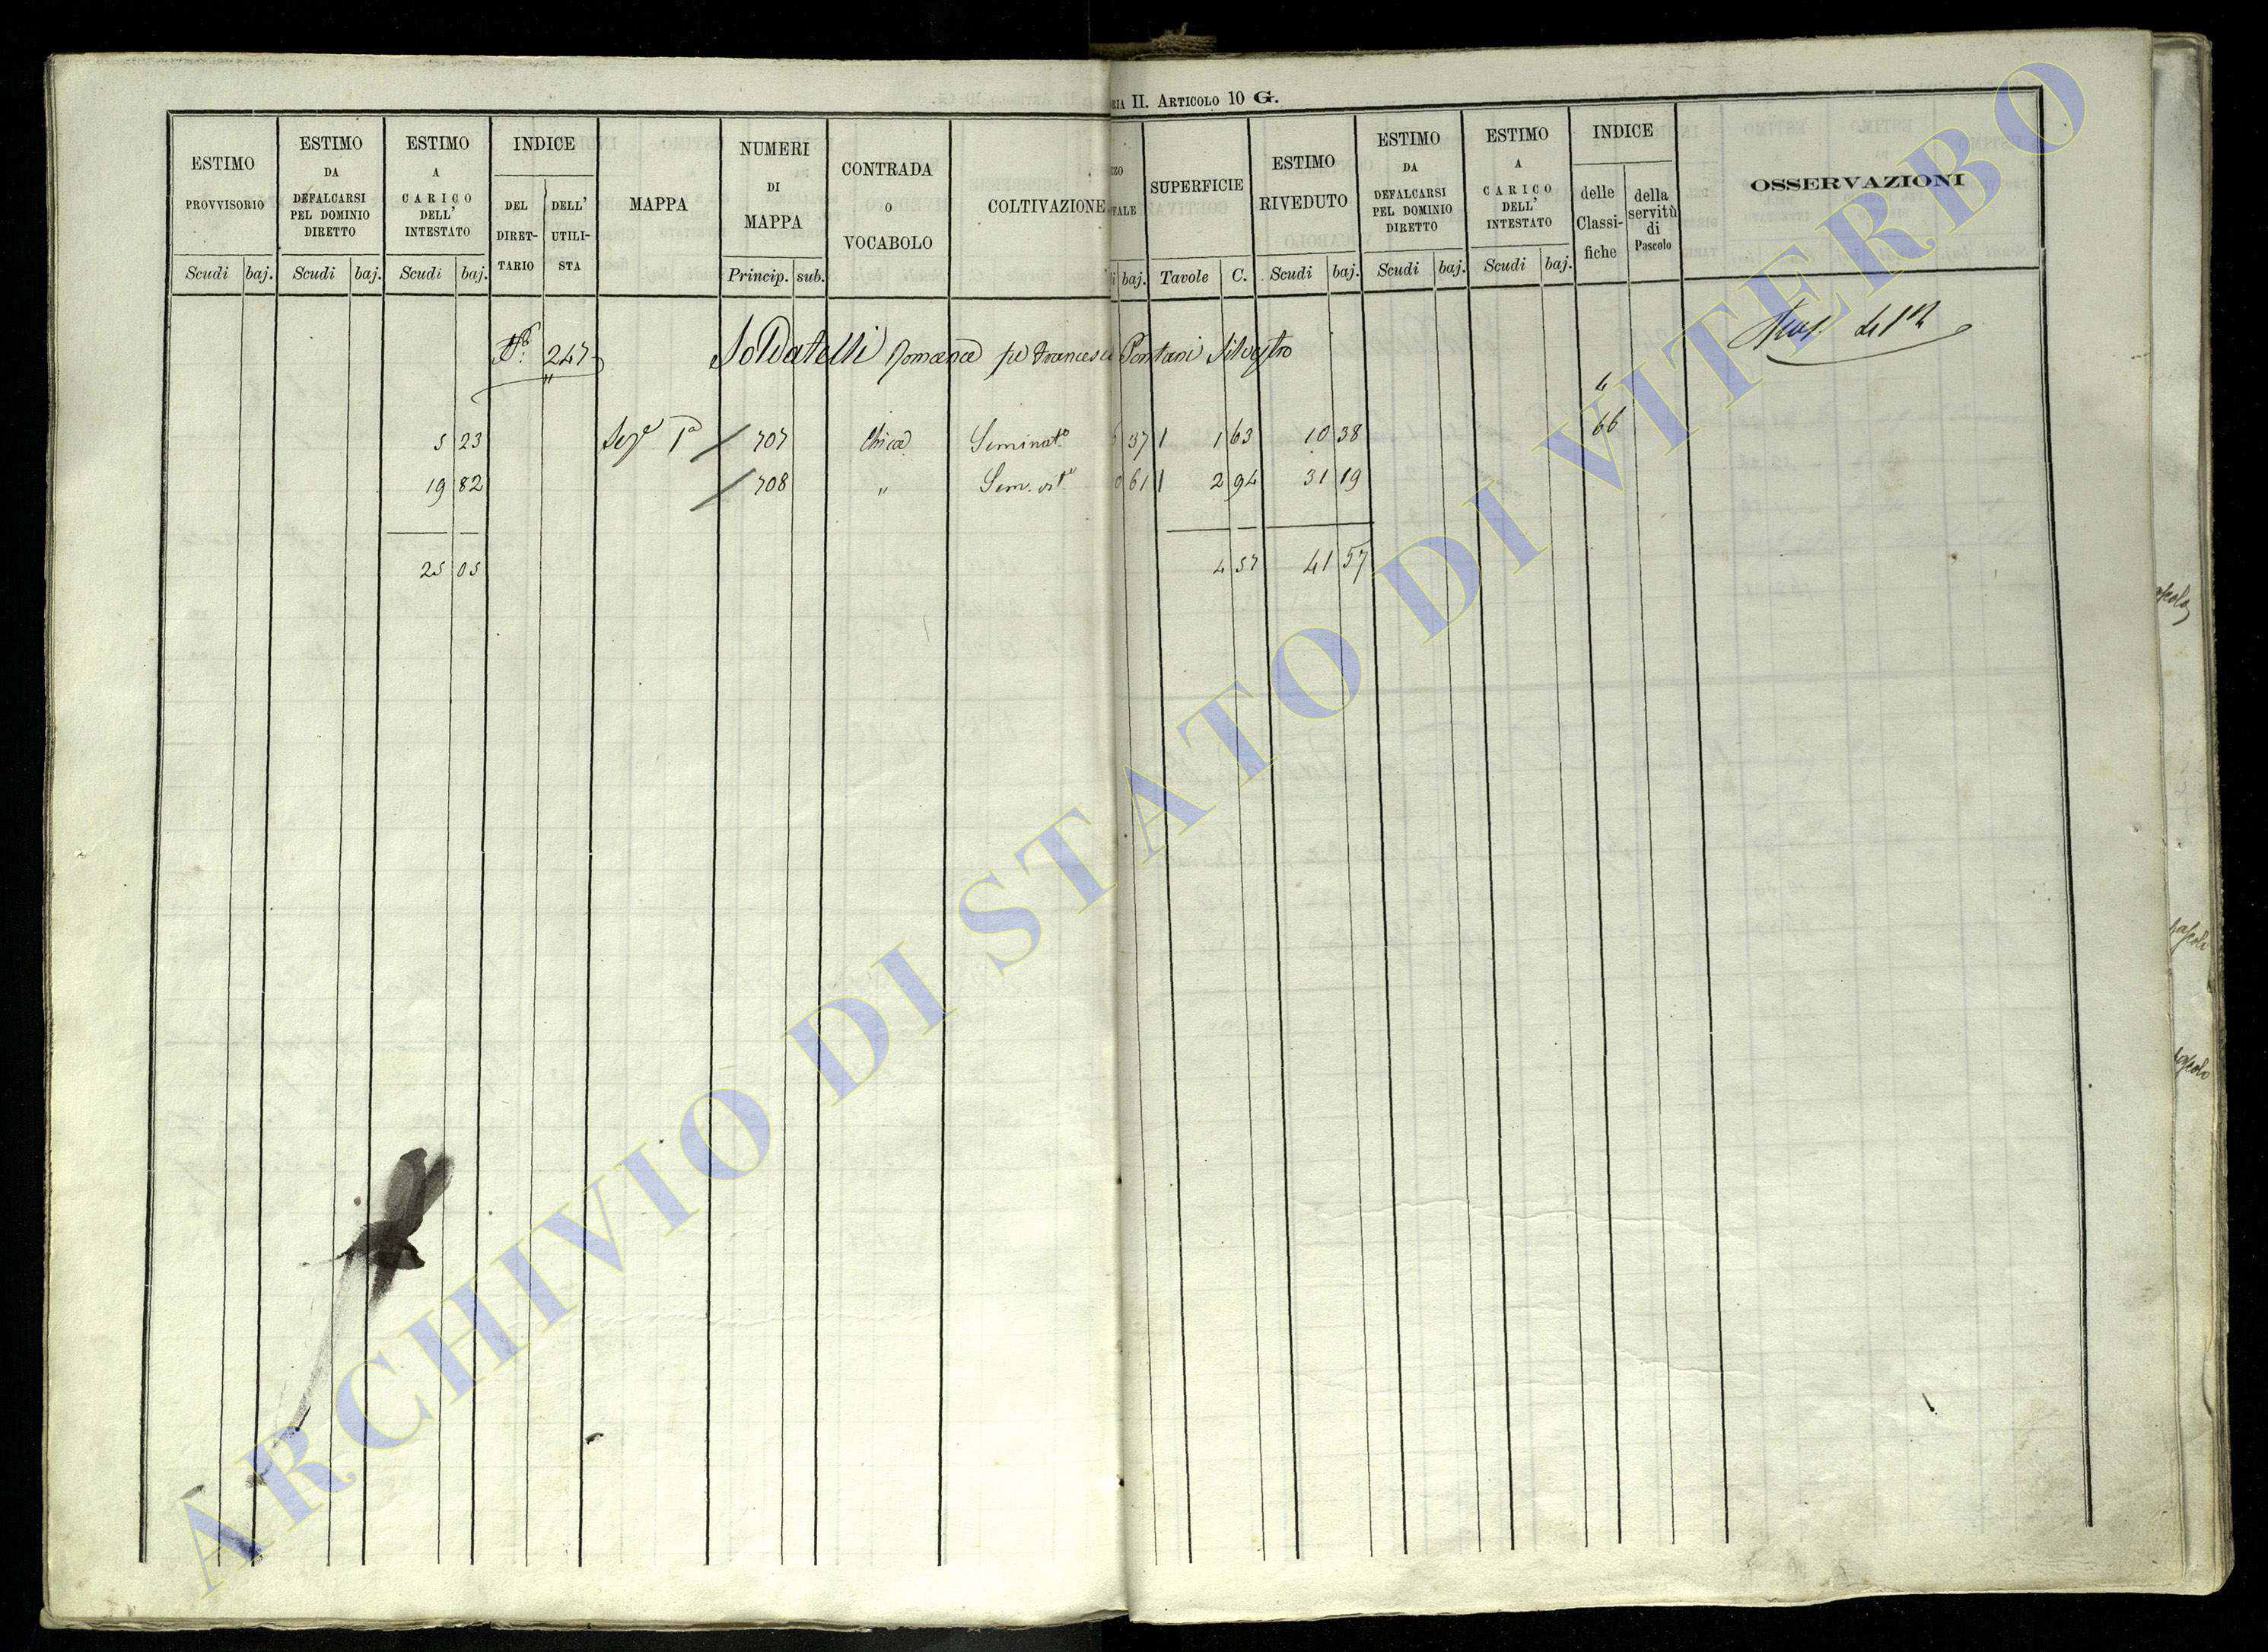 RIA II. ARTICOLO 10 G.
ESTIMO PROVVISORIO
Scudi baj.
ESTIMO DA DEFALCARSI PEL DOMINIO DIRETTO
Scudi baj.
ESTIMO A CARICO DELL' INTESTATO
Scudi baj.
INDICE
DEL DIRET-TARIO
DELL' UTILI-STA
MAPPA
NUMERI DI MAPPA
Princip. sub.
CONTRADA O VOCABOLO
COLTIVAZIONE
ZZO
TALE
i baj.
SUPERFICIE
Tavole C.
ESTIMO RIVEDUTO
Scudi baj.
ESTIMO DA DEFALCARSI PEL DOMINIO DIRETTO
Scudi baj.
ESTIMO A CARICO DELL' INTESTATO
Scudi baj.
INDICE
delle Classi-fiche
della servitù di Pascolo
OSSERVAZIONI
247 Soldatelli Domenica Francesco Pontani Silvestro
4
5 23 Sez.e 1a 707 Chica Seminat.o 37 1 63 10 38 66
19 82 708 " Sem. vit.o 61 2 94 31 19
25 05 4 57 41 57
ARCHIVIO DI STATO DI VITERBO